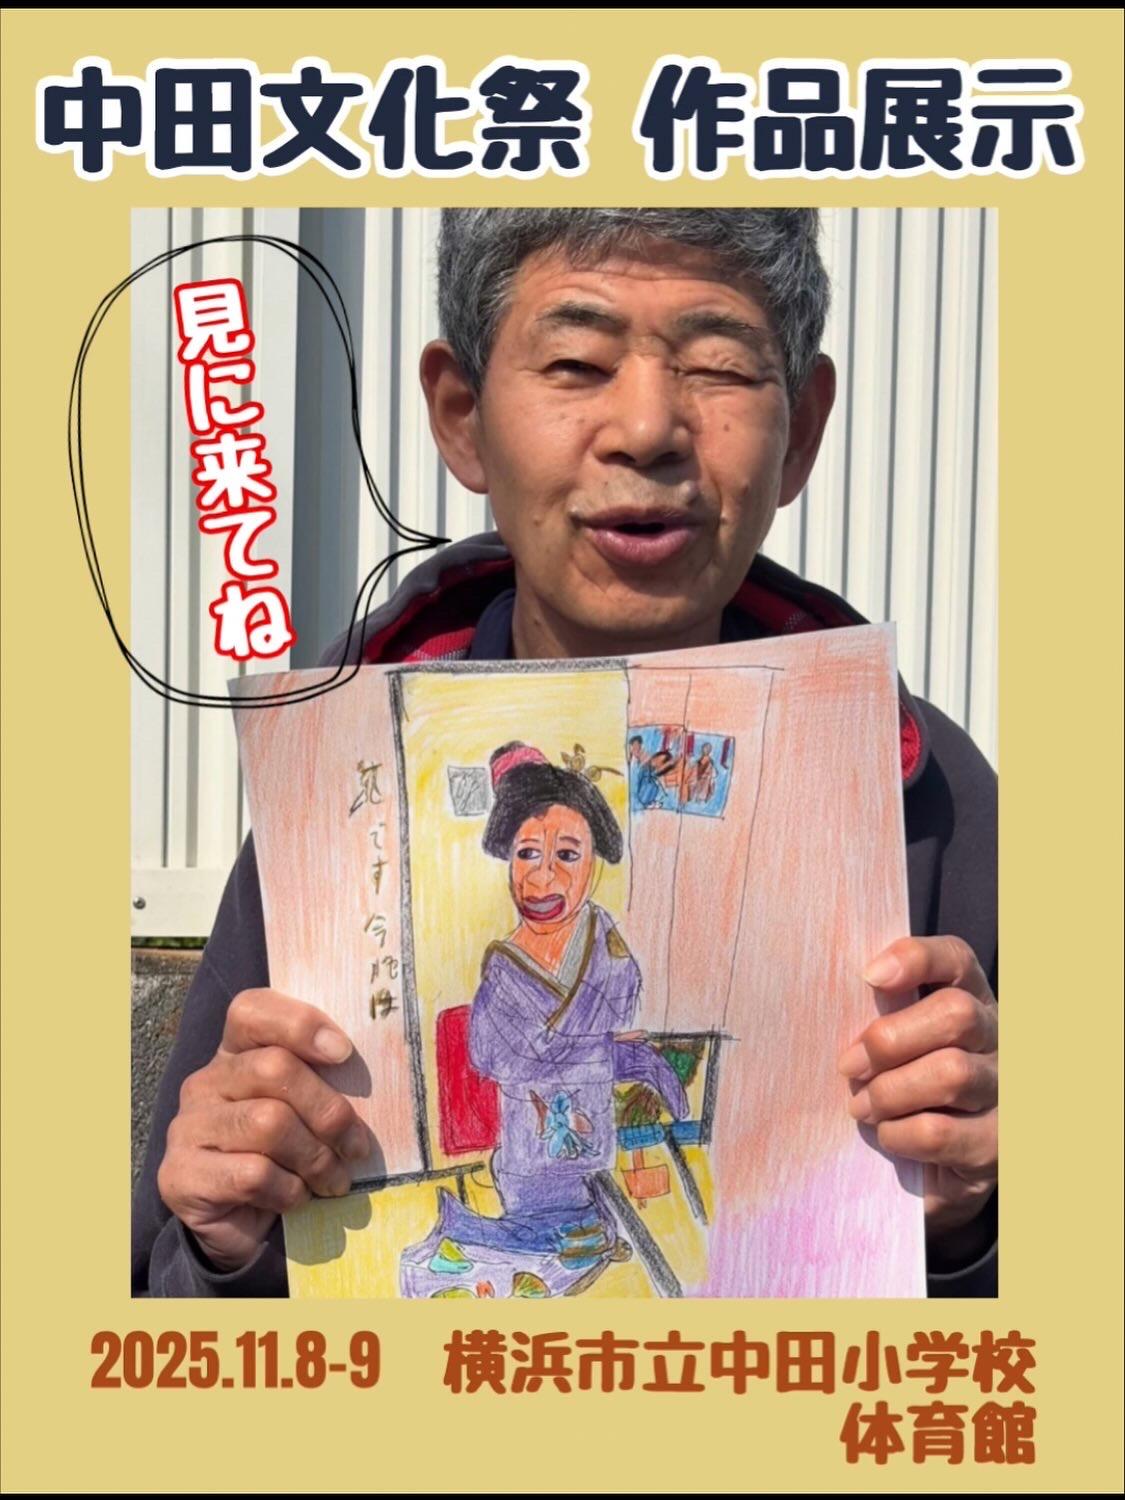 中田文化祭 作品展示
見に来てね
です 今晩は
2025.11.8-9 横浜市立中田小学校
体育館